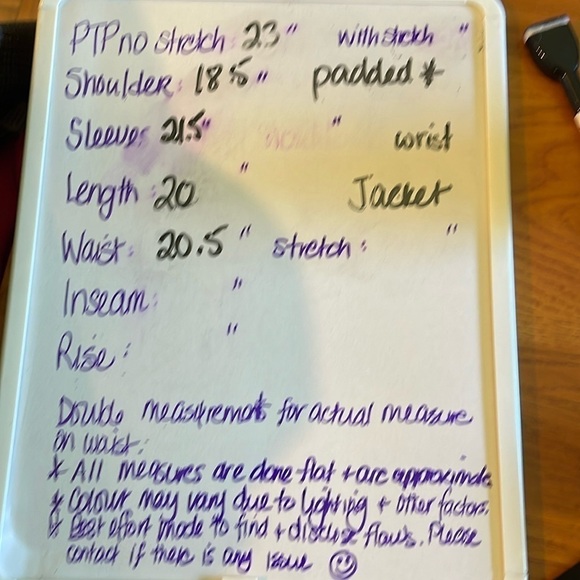 PTP no stretch 23" with stretch "
Shoulder: 18.5" padded *
Sleeves 21.5" " wrist
Length: 20 " Jacket
Waist: 20.5" stretch: "
Inseam: "
Rise: "
Double measurements for actual measure
on waist:
* All measures are done flat + are approximate
* Colour may vary due to lighting + other factors.
* Best effort made to find + disclose flaws. Please
contact if there is any issue ☺